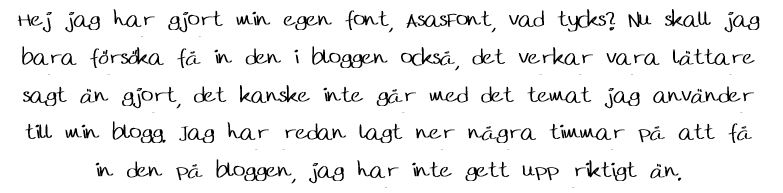 Hej jag har gjort min egen font, AsasFont, vad tycks? Nu skall jag
bara försöka få in den i bloggen också, det verkar vara lättare
sagt än gjort, det kanske inte går med det temat jag använder
till min blogg. Jag har redan lagt ner några timmar på att få
in den på bloggen, jag har inte gett upp riktigt än.